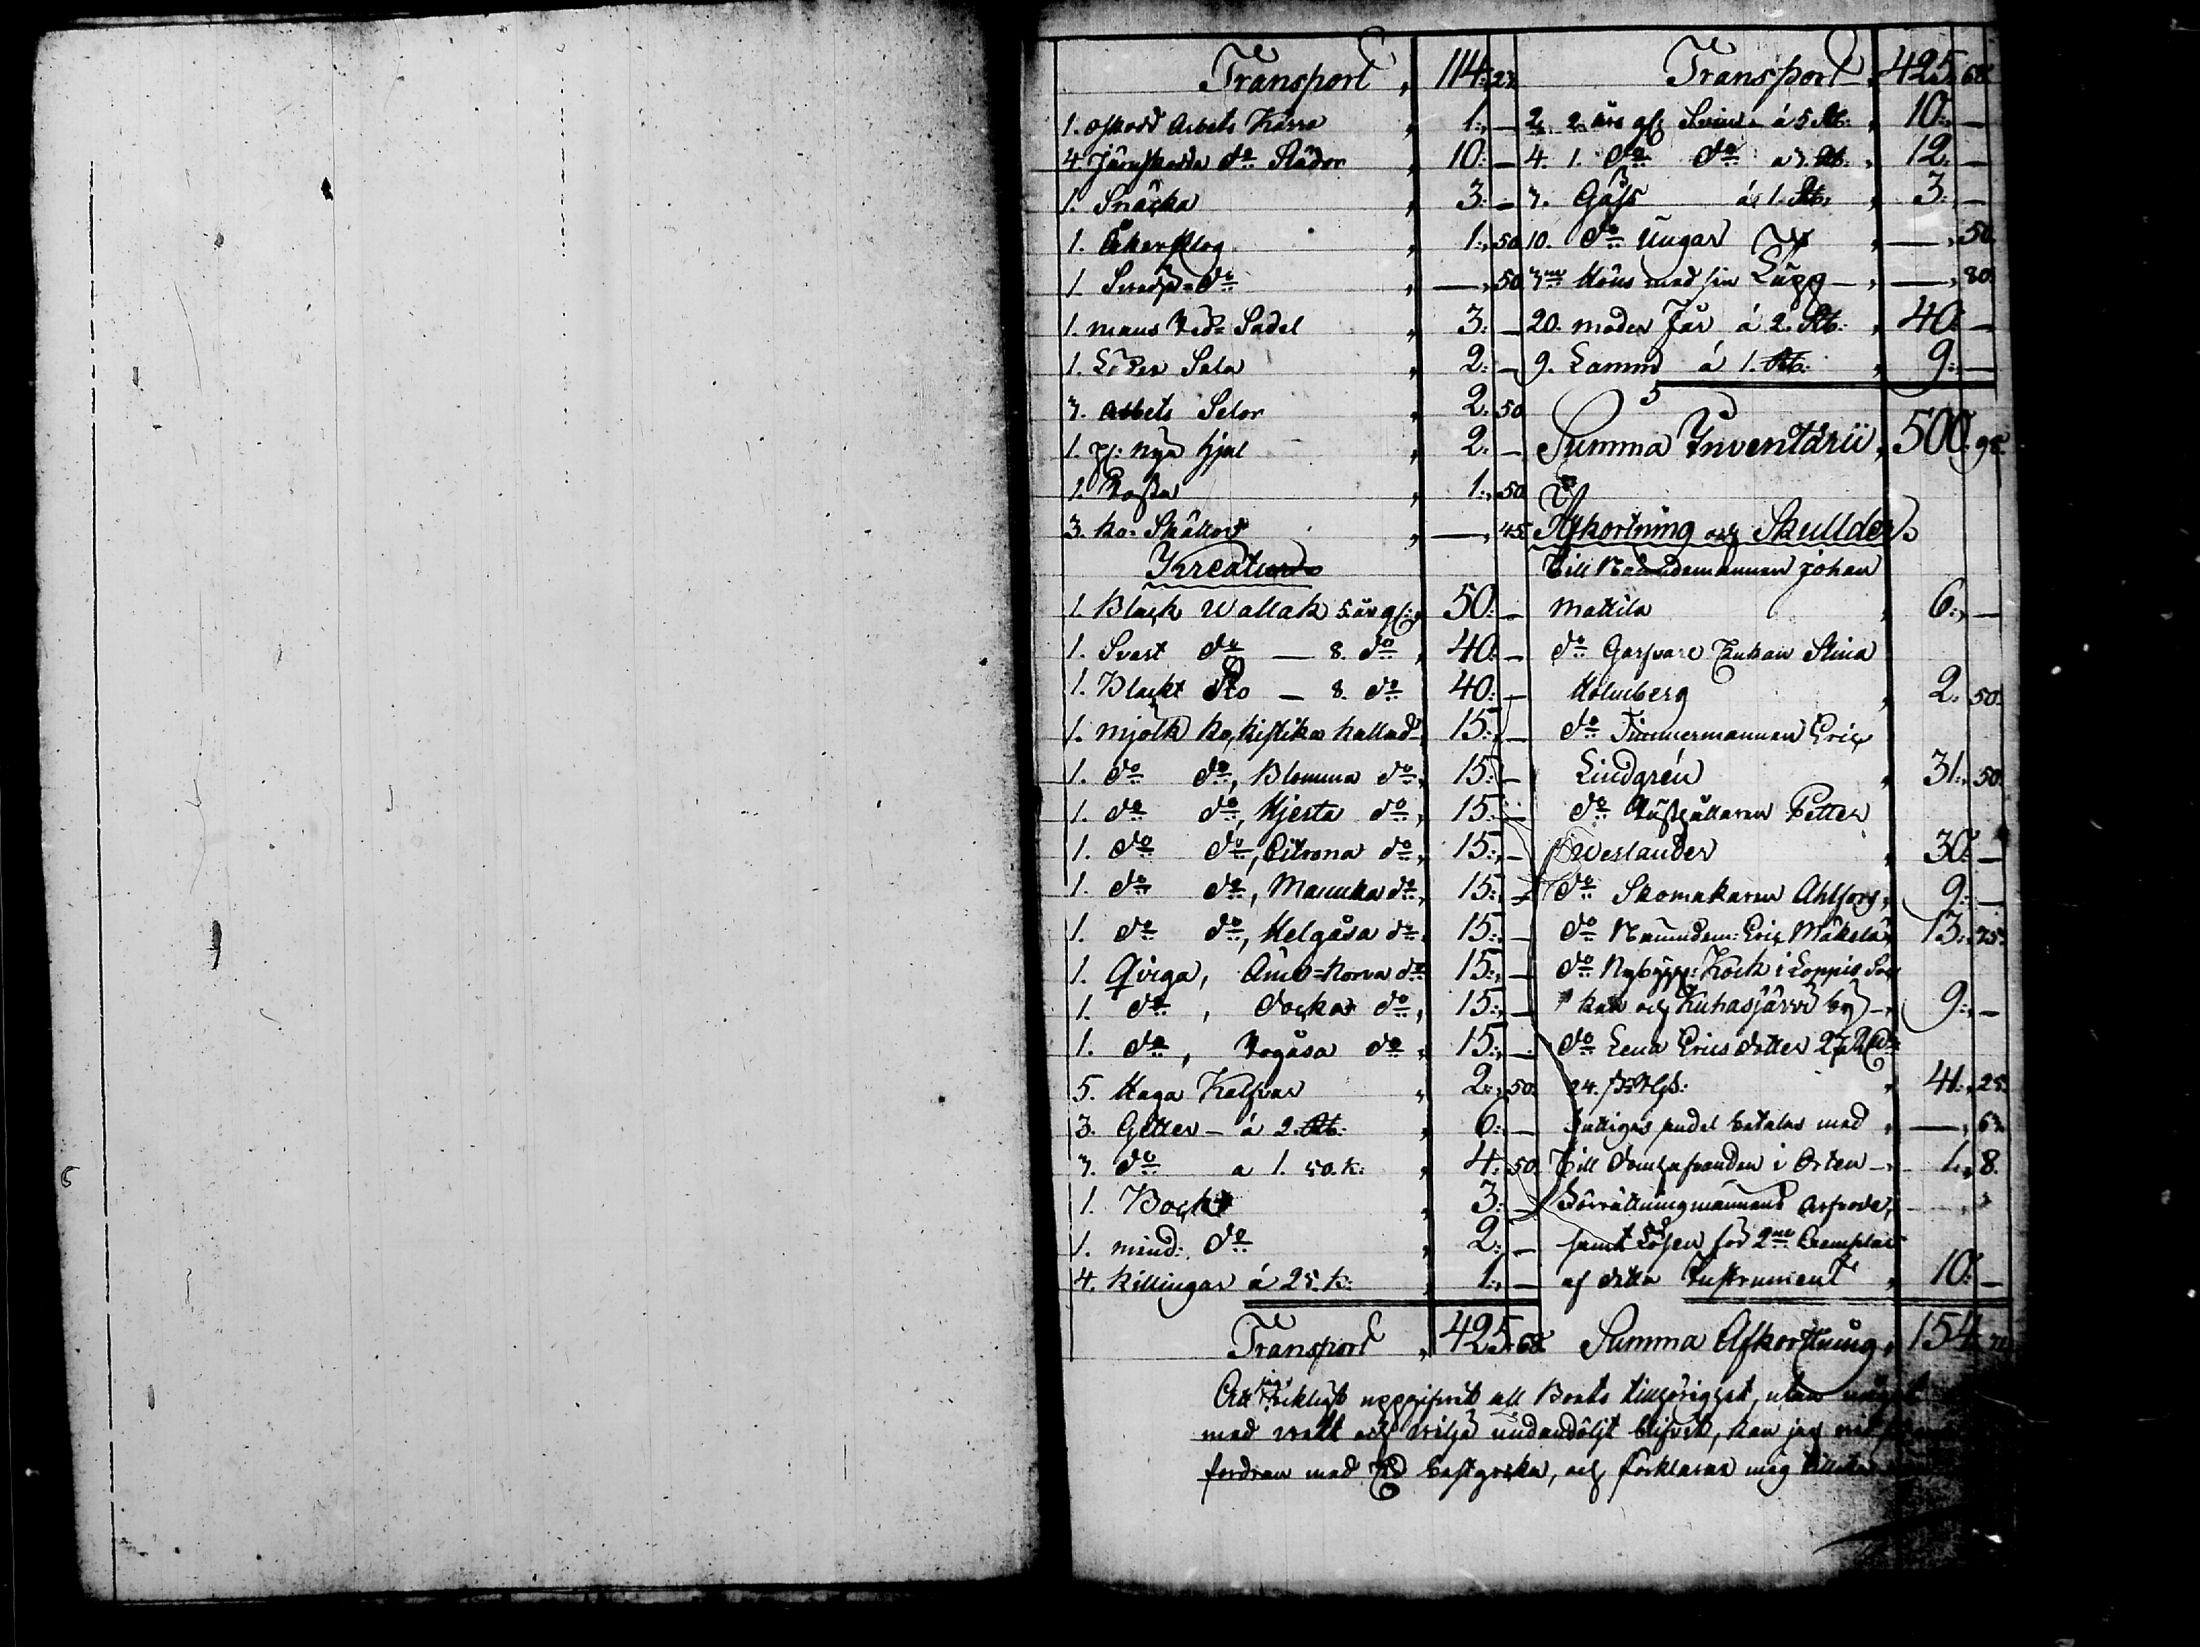 Transport " 114:, 23.
1. oskodd Arbets Kärra " 1:, —
4 Järnskodda do Slädor " 10: —
1. Snäcka " 3: —
1. Åkerplog " 1:, 50.
1 Sved= do " —, 50.
1. mans Rid= Sadel " 3: —
1. Läder Sela " 2: —
3. Arbets Selor " 2. 50
1. pr: nya hjul " 2: —
1. " 1:, 50
3. ko= Skällor " —, 45.
Kreatur
1. Black Wallak 5 år gl: " 50: —
1. Svart do — 8. do " 40: —
1. Blackt Sto — 8. do 40: —
1. mjölk ko, kallad 15:, —
1. do do, Blomma do, 15: —
1. do do, Hjerta do, 15: —
1. do do, Citrona do, 15:, —
1. do do, Mannika do, 15:, —
1. do do, Helgåsa do 15: —
1. Qviga, do 15:, —
1. do, Docka do, 15:, —
1. do, do " 15:, —
5. Kalfvar " 2:, 50.
3. Getter — á 2. Rb: " 6:, —
3. do a 1. 50. k: " 4: 50.
1. Bock " 3: —
1. mind: do " 2: —
4. killingar á 25. k: " 1:, —
Transport " 425. 68.
Transport " 425. 68.
2. 2. års gl: Svin á 5 Rb: " 10:, —
4. 1. do do a 3. Rb. " 12. —
3. Gåss á 1. Rb. " 3:, —
10. do Ungar " —, 50.
3ne Höns med sin Tupp — " —, 80.
20. moder Får á 2. Rb. " 40: —
9. Lamm á 1. Rb. " 9:, —
Summa Inventarii " 500. 98.
Afkortning och Skullder.
Till Nämndemannen Johan
Mattila " 6:, —
do Garfvare Enkan Stina
Holmberg " 2. 50.
do Timmermannen Eric
Lindgrén " 31:, 50.
do Rusthållaren Petter
Weslander " 30: —
do Skomakaren Ahlfors " 9: —
do Nämndem: Eric Mäkelä " 13:, 75.
do Nybygg: Kock i Loppis Soc
ken och Kuhasjärwi by — " 9:, —
do Lena Ericsdotter 27
24. " 41:, 25.
Fattigas andel betalas med " —, 63.
Till i Orten — " 1., 8.
Förrättningsmännens Arfvode,
samt Lösen för 2ne Exemplar
af detta Instrument " 10: —
Summa Afkortning " 154.
Att jag rikligt uppgifvit all Boets tillhörighet, utan något
med vett och vilja undandöljt blifvit, kan jag vid
fordran med Ed bestyrka, och förklarar mig